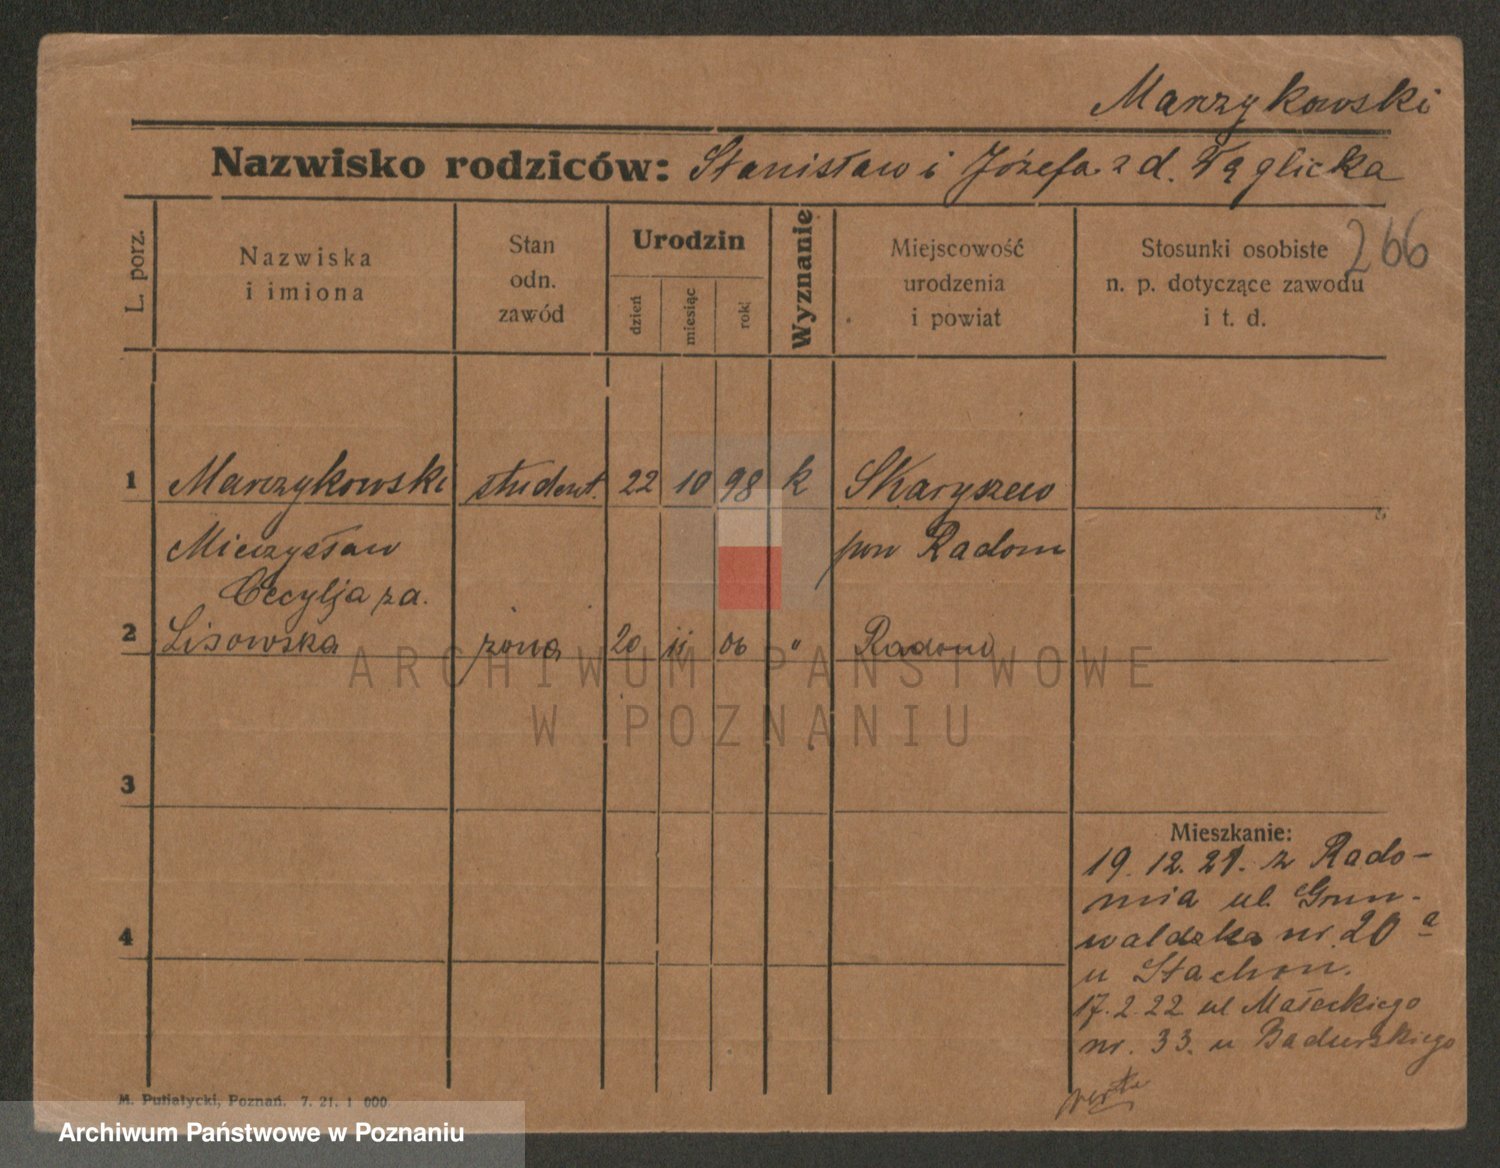 Marzykowski
Nazwisko rodziców: Stanisław i Józefa z d. Węglicka
266
L. porz.
Nazwiska
i imiona
Stan
odn.
zawód
Urodzin
dzień
miesiąc
rok
Wyznanie
Miejscowość
urodzenia
i powiat
Stosunki osobiste
n. p. dotyczące zawodu
i t. d.
1 Marzykowski student. 22 10 98 k Skaryszew
Mieczysław pow Radom
Cecylja za.
2 Lisowska żona 20 11 06 " Radom
3
4
Mieszkanie:
19. 12. 21. z Rado-
mia ul. Grun-
waldzka nr. 20 a
u Stachon.
17. 2. 22 ul Małeckiego
nr. 33. u Badurskiego
verte
M. Putiatycki, Poznań. 7. 21. 1 000
ARCHIWUM PAŃSTWOWE
W POZNANIU
Archiwum Państwowe w Poznaniu